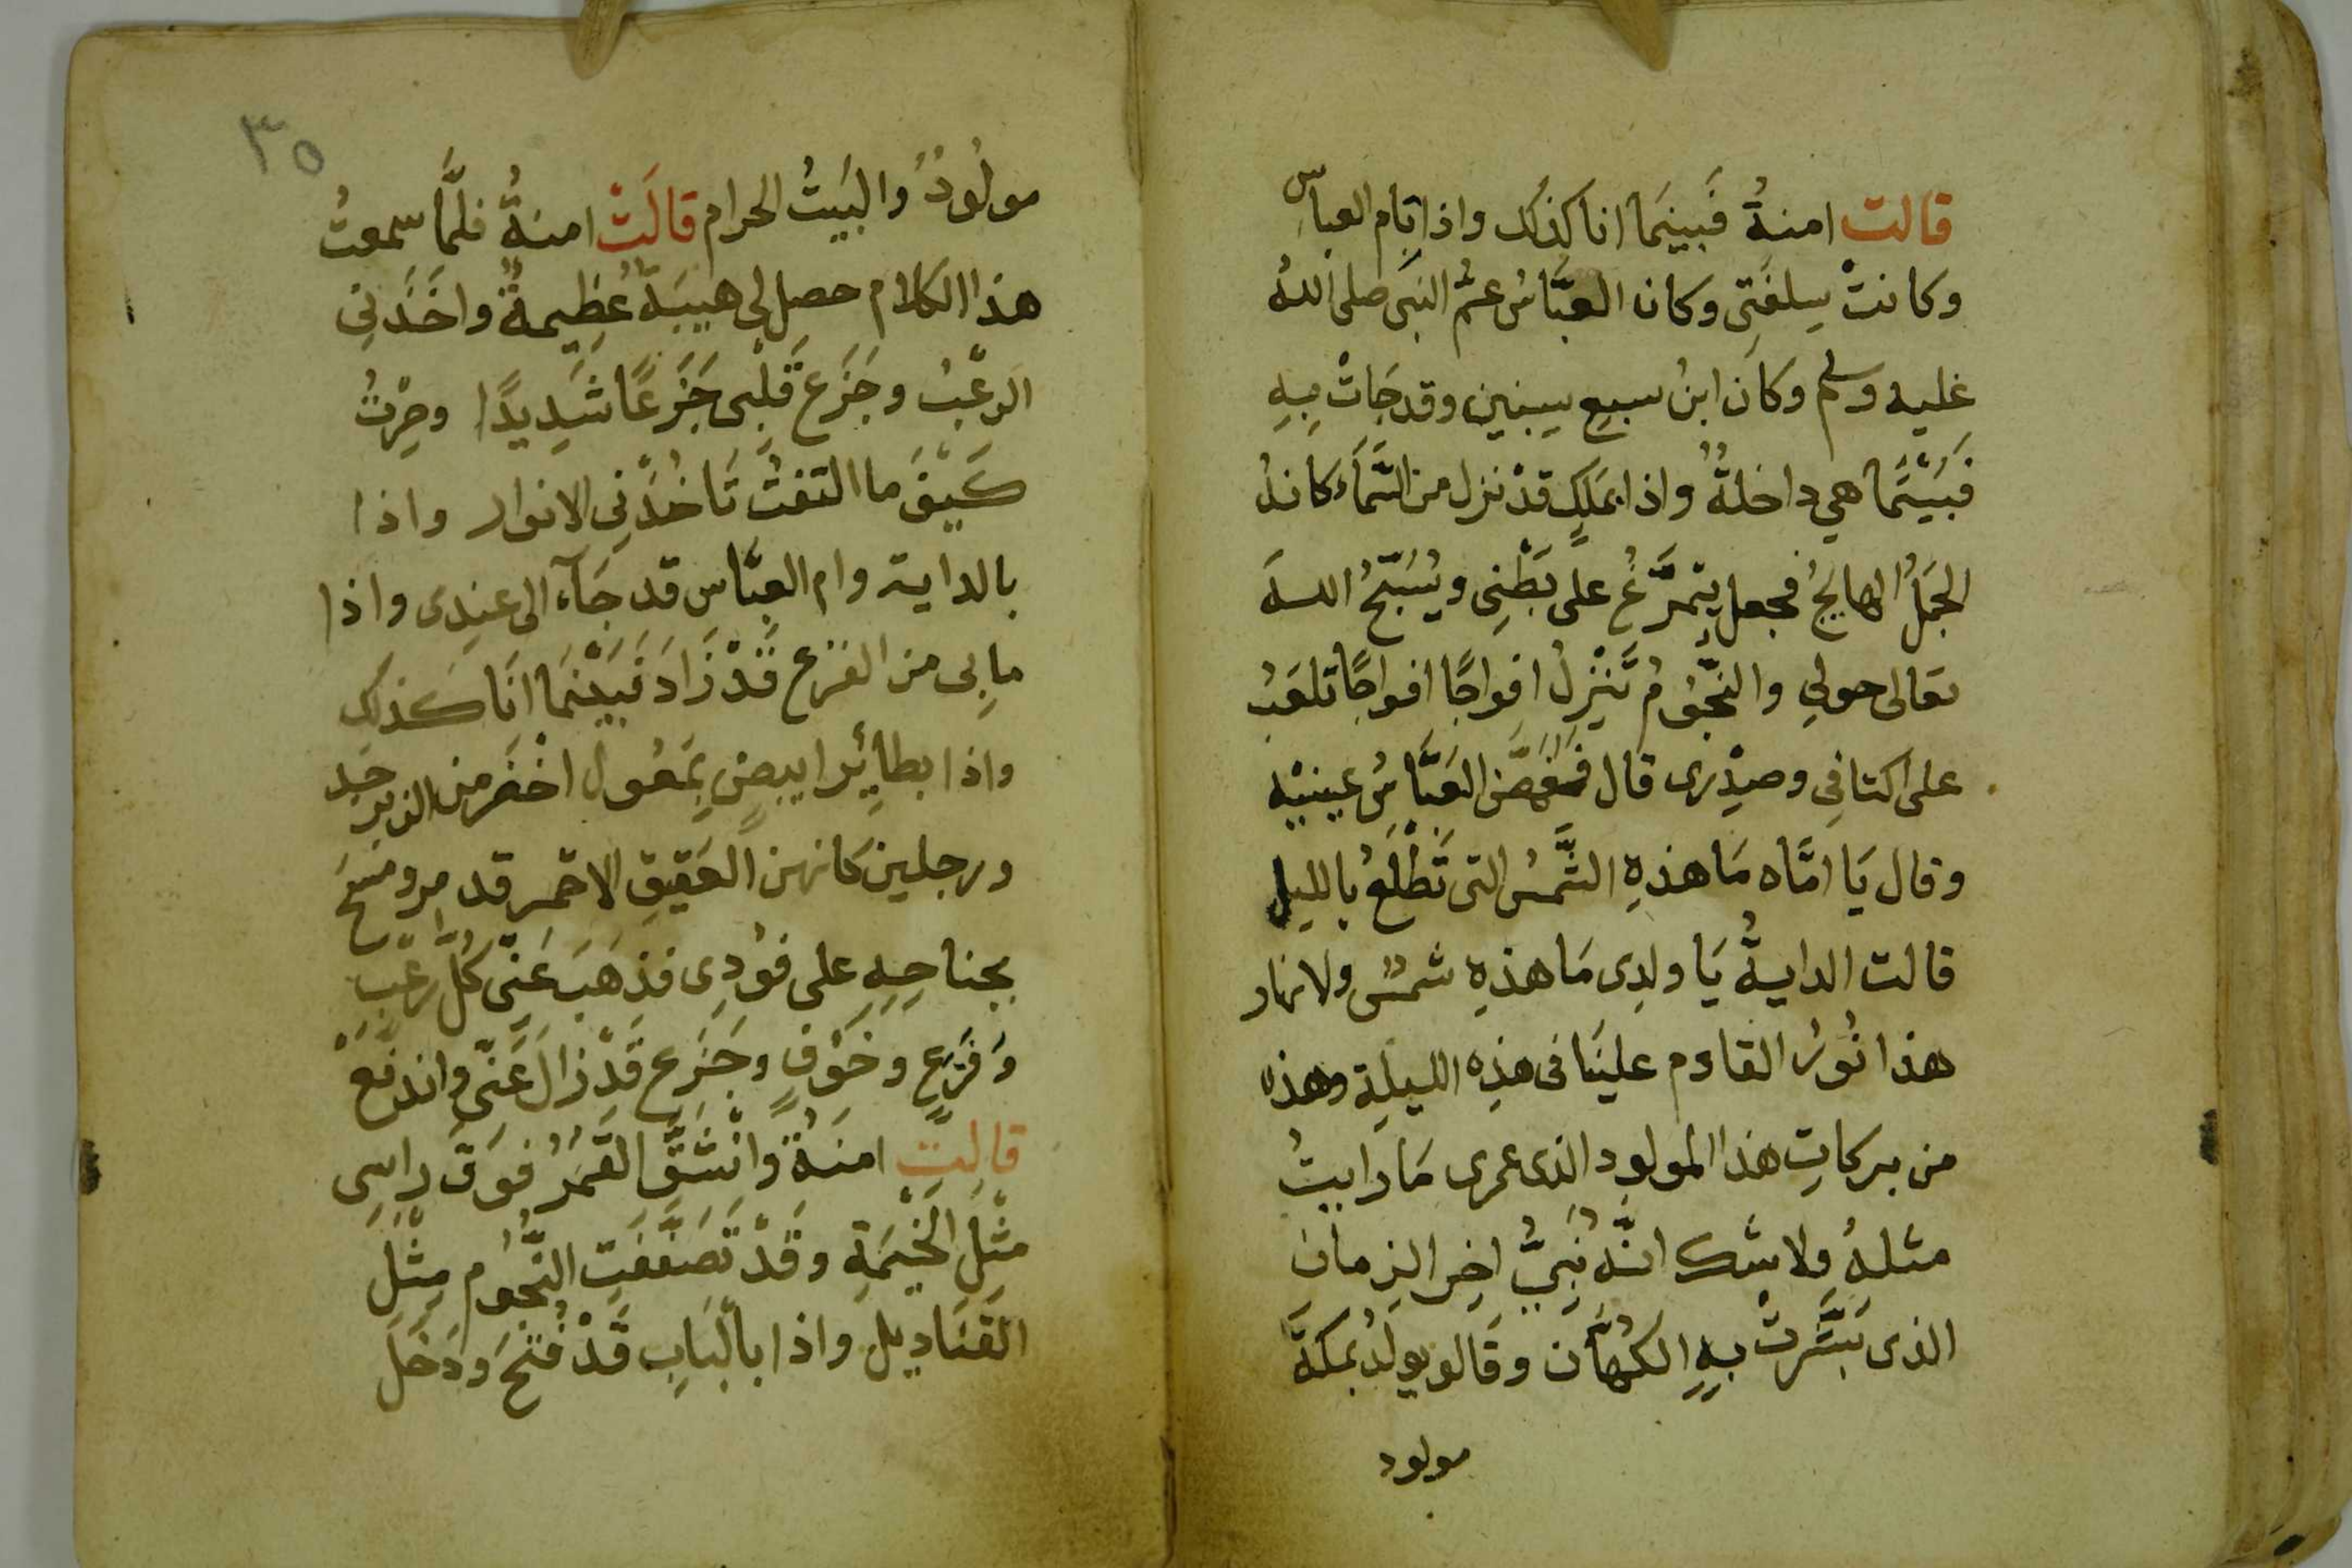 قالت امنةُ فَبينَما انا كذلك واذا بام العباسِ
وكانتْ سِلفَتِى وكان العبَّاسُ عمُّ النبى صلى اللهُ
عليه وسلم وكان ابنُ سبعِ سِنِين وقد جَاتْ بِهِ
فَبَيْنَما هي داخلةُ واذا بمَلَكٍ قدْ نزل من السَّمَاءَ كانهُ
الجَمَلُ الهايجُ فجعل يتمرَّغُ على بَطْنِى ويُسَبّحُ اللهَ
تعالى حولِي والنَّجُومُ تَنْزِلُ افواجًا افواجًا تلعَبُ
على اكتافِى وصدْرِى قال فَغَمَّضَ العَبَّاسُ عينيْه
وقال يَا امَّاه مَا هذهِ الشَّمسُ التى تَطْلَعُ بالليل
قالت الدايةُ يَا ولدِى مَا هذهِ شمسُ ولا نهار
هذا نُورُ القادم علينَا فى هذِه الليلة وهذه
من بركاتِ هذا المولود الذى عمرى مَا رايتُ
مثلهُ ولا شك انَّهُ نَبِيُّ اخِر الزمان
الذى بَشَّرتْ بهِ الكُهَّان وقَالو يولَدُ بمكةَ
مولود
٣٥
مولُودُ والبَيتُ الحرام قالَتْ امنةُ فلمَّا سمعتُ
هذا الكلام حصل لى هيبَةُ عظِيمةُ واخَذَنِى
الرعْبُ وجَزَعَ قَلْبِى جَزَعًا شَدِيدًا وصِرْتُ
كَيْفَ ما التفتُ تَاخُذُنِى الانوار واذا
بالداية وام العبَّاسِ قد جَاء الى عندِى واذا
مابِى من الفزع قَدْ زَادَ فَبَيْنَمَا انَا كَذلك
واذا بطايِرٍ ابيضٍ بمَعُول اخْضَر من الزبرجد
ورجلين كانهن العَقِيقِ الاحْمَر قد مر ومسَحَ
بجناحِهِ على فوُدِى فذهَبَ عَنِّى كُلَّ رعْبٍ
وَفَزَعٍ وخَوْفٍ وجَزَعٍ قَدْ زالَ عَنِّى واندفَعَ
قالتِ امنَةُ وَانْشَقَّ القَمَرُ فوَقَ راسِى
مثْلَ الخَيْمَةِ وقَدْ تَصَفَّفَتِ النُّجُوم مِثْلَ
القَنَاديل واذا بالبَابِ قَدْ فُتحَ ودَخَلَ